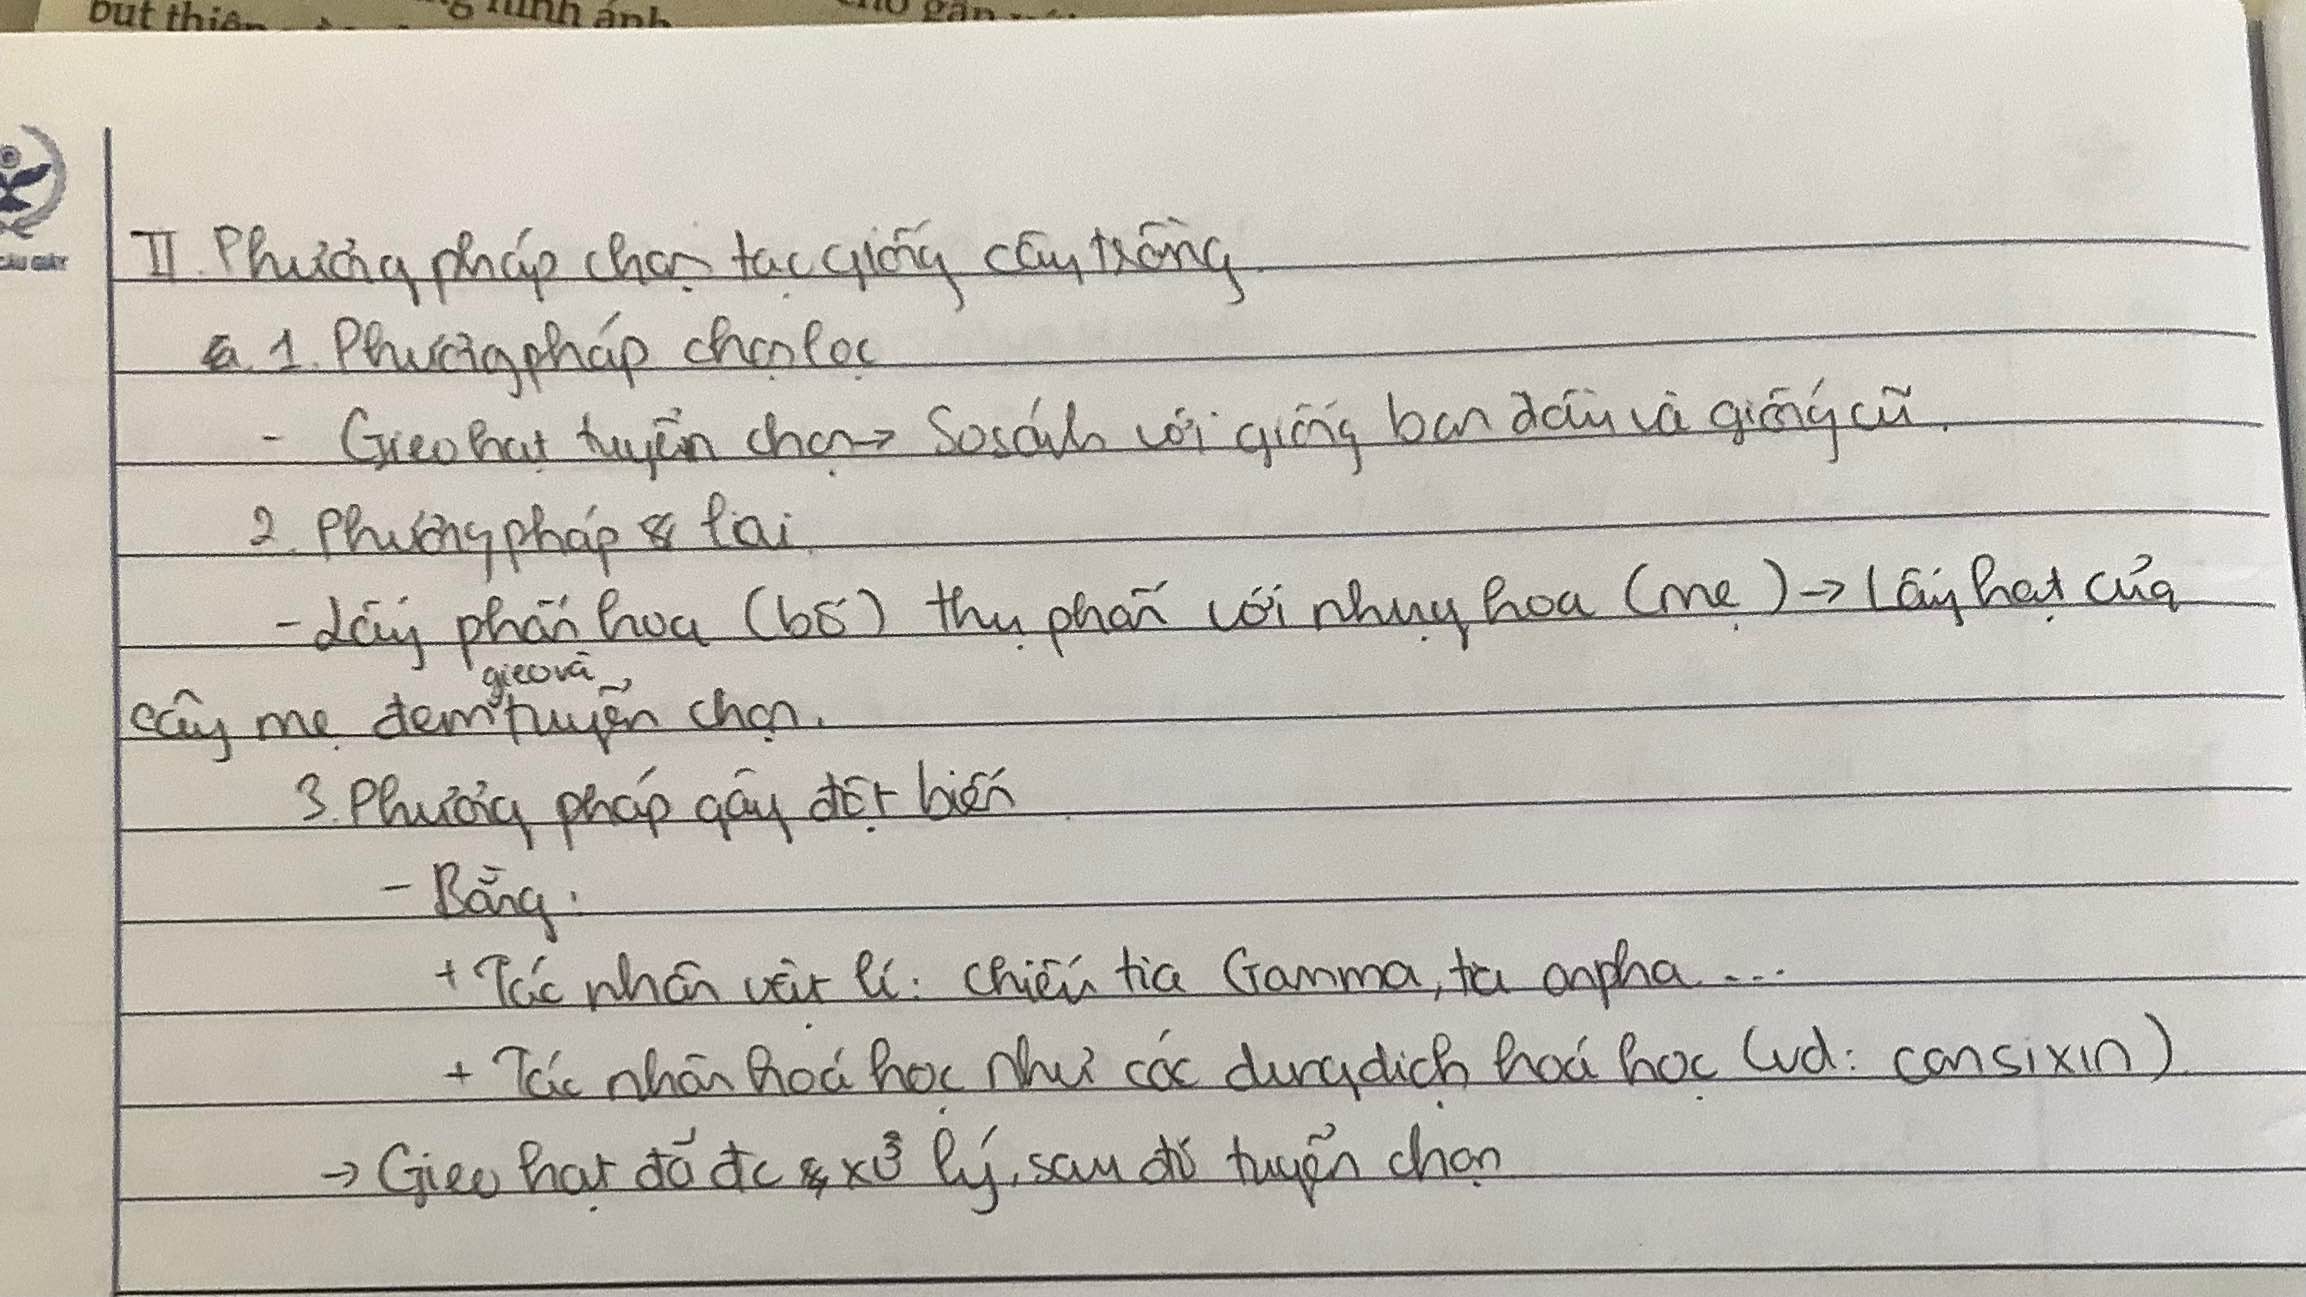 bút thiên hình ảnh
CẦU GIẤY
II. Phương pháp chọn tạo giống cây trồng
1. Phương pháp chọn lọc
- Gieo hạt tuyển chọn → So sánh với giống ban đầu và giống cũ.
2. Phương pháp lai
- Lấy phấn hoa (bố) thụ phấn với nhụy hoa (mẹ) → Lấy hạt của
gieo và
cây mẹ đem tuyển chọn.
3. Phương pháp gây đột biến
- Bằng:
+ Tác nhân vật lí: chiếu tia Gamma, tia anpha...
+ Tác nhân hoá học như các dung dịch hoá học (vd: cansixin)
→ Gieo hạt đã đc xử lý, sau đó tuyển chọn